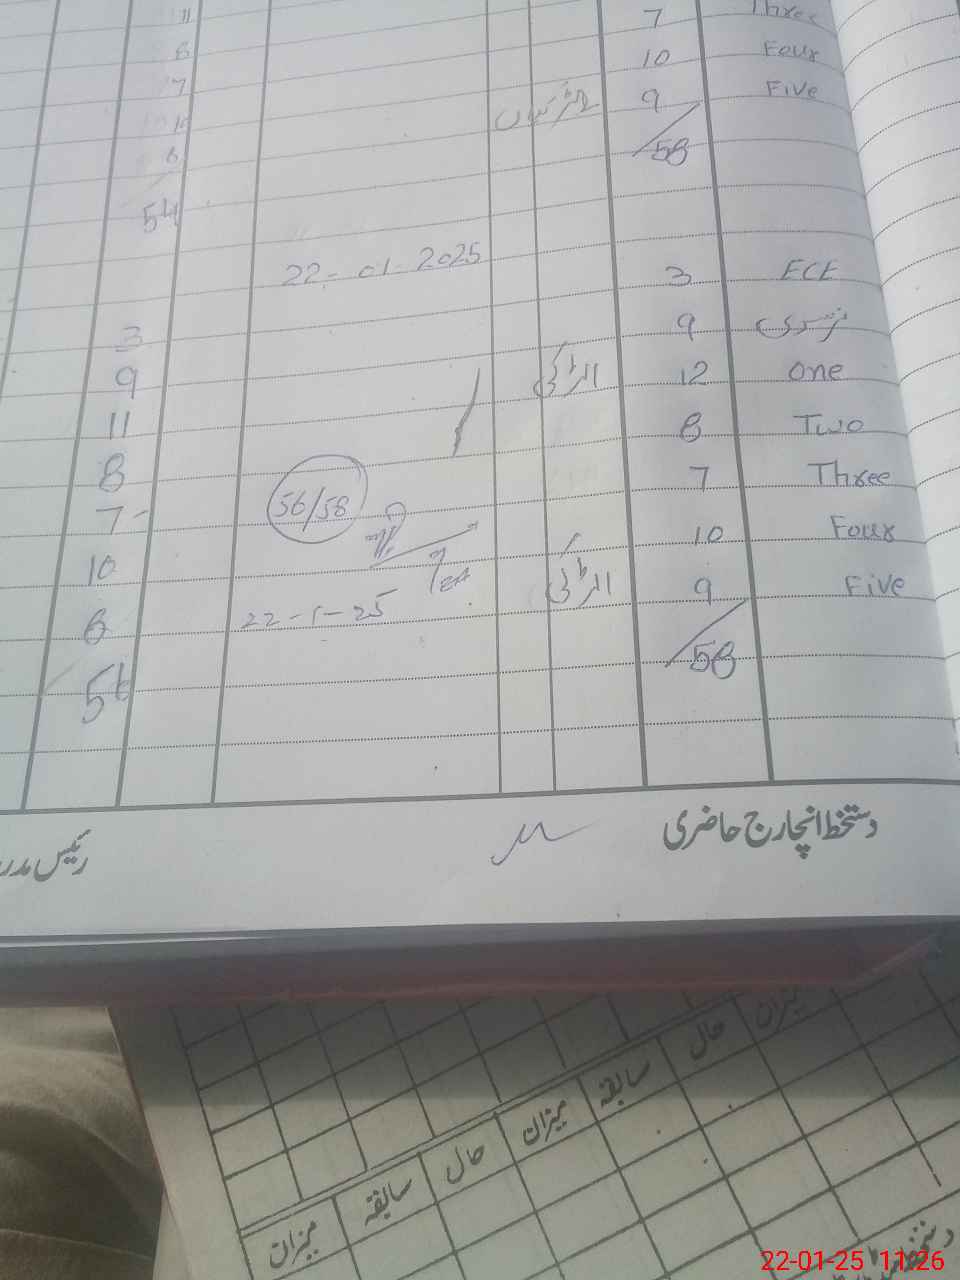 11 7 Three
8 10 Four
7 9 Five
10
6 58
54
22-01-2025
3 ECE
3 9 نرسری
9 12 One
11 8 Two
8 7 Three
7 56/58 10 Four
10 9 Five
6 22-1-25
56 58
دستخط انچارج حاضری
رئیس مدر
میزان حال سابقہ میزان
حال سابقہ میزان
22-01-25 11:26